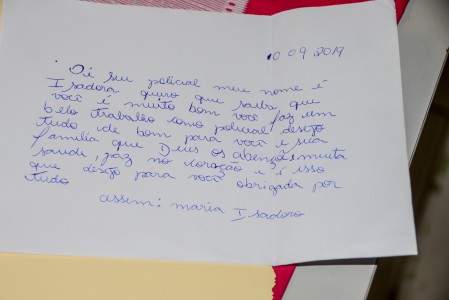 10 09 2019
Oi seu policial meu nome é
Isadora quero que saiba que
você é muito bom você faz um
belo trabalho como policial, desejo
tudo de bom para você e sua
família que Deus os abençõe muita
saúde, paz no coração e é isso
que desejo para você obrigada por
tudo
assem: maria Isadora